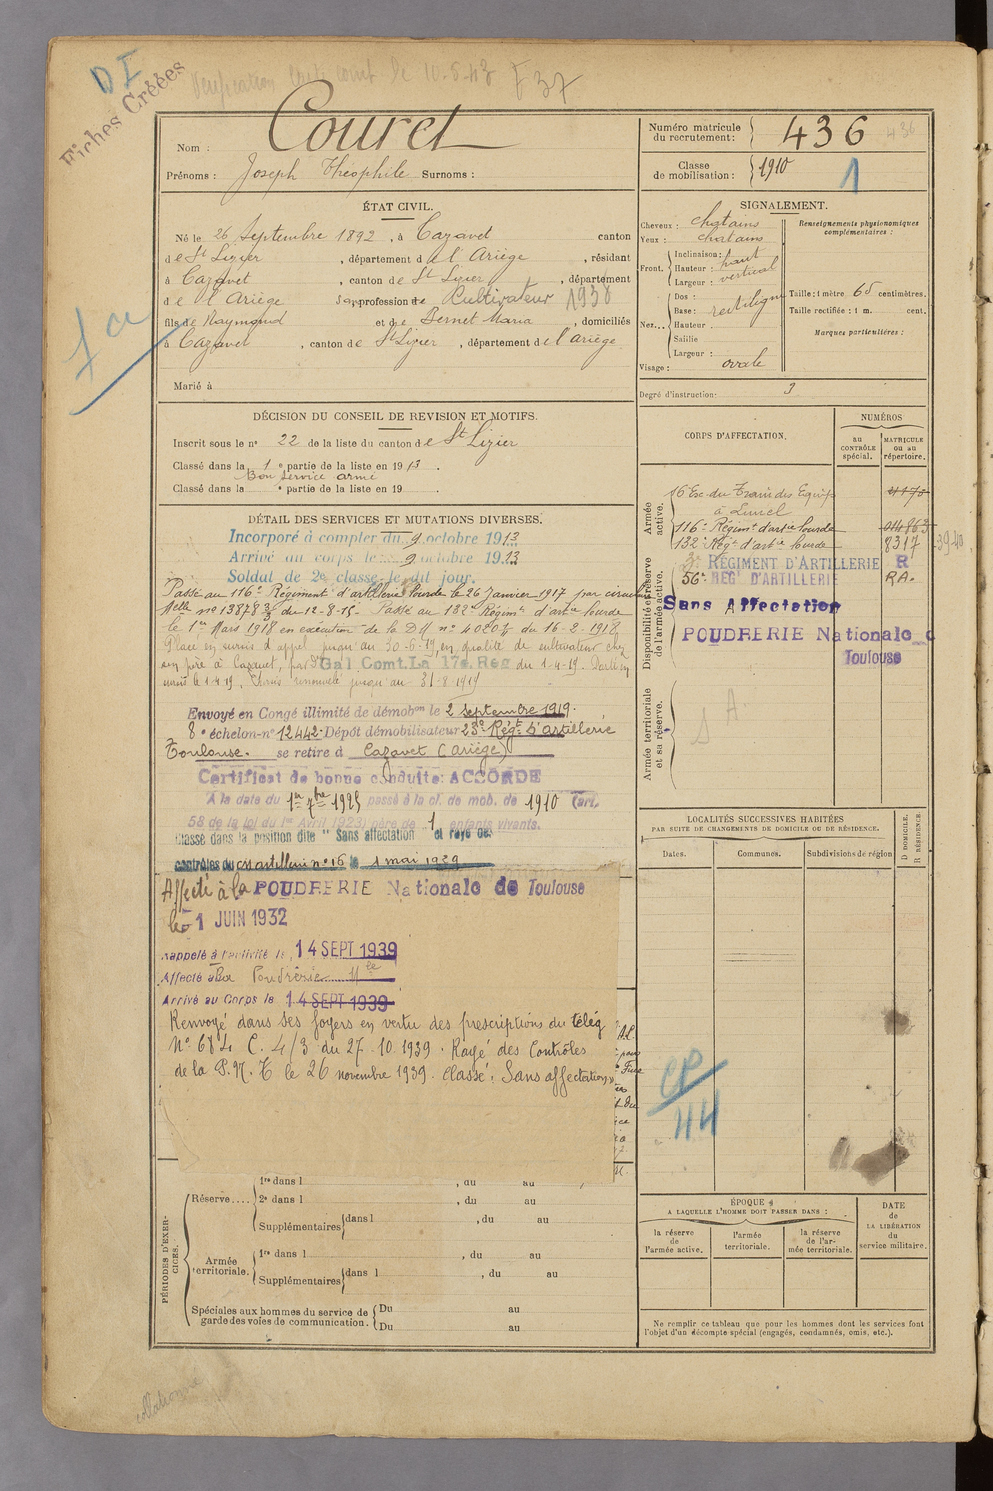 DI
Fiches Créées
Vérification court le 10-5-43 F 37
Nom : Couret
Prénoms : Joseph Théophile Surnoms :
Numéro matricule du recrutement : 436 436
Classe de mobilisation : 1910 1
ÉTAT CIVIL.
Né le 26 Septembre 1892, à Cazavet canton
de St Lizier, département de l'Ariège, résidant
à Cazavet, canton de St Lizier, département
de l'Ariège sa profession de Cultivateur 1938
fils de Raymond et de Bernet Maria, domiciliés
à Cazavet, canton de St Lizier, département de l'ariège
Marié à
SIGNALEMENT.
Cheveux : chatains
Yeux : chatains
Front. Inclinaison :
Hauteur : haut
Largeur : vertical
Nez... Dos : rectiligne
Base :
Hauteur
Saillie
Largeur :
Visage : ovale
Renseignements physionomiques complémentaires :
Taille : 1 mètre 65 centimètres.
Taille rectifiée : 1 m. cent.
Marques particulières :
Degré d'instruction : 3
DÉCISION DU CONSEIL DE REVISION ET MOTIFS.
Inscrit sous le n° 22 de la liste du canton de St Lizier
Classé dans la 1e partie de la liste en 1913.
Bon service armé
Classé dans la e partie de la liste en 19 .
DÉTAIL DES SERVICES ET MUTATIONS DIVERSES.
Incorporé à compter du 9 octobre 1913
Arrivé au corps le 9 octobre 1913
Soldat de 2e classe le dit jour.
Passé au 116e Régiment d'artillerie lourde le 26 Janvier 1917 par circulaire
Mlle n° 13878 3/3 du 12-8-16 Passé au 132e Régimt d'artie lourde
le 1er Mars 1918 en exécution de la DM n° 4020 du 16-2-1918
Placé en sursis d'appel jusqu'au 30-6-19, en qualité de cultivateur chez
son père à Cazavet, par Dn Gal Comt. La 17e. Reg du 1-4-19.
sursis le 1-4-19. Sursis renouvelé jusqu'au 31-8-1919
Envoyé en Congé illimité de démobon le 2 septembre 1919.
8e échelon - n° 12442 - Dépôt démobilisateur 23e Régt d'artillerie
Toulouse. se retire à Cazavet (Ariège)
Certificat de bonne conduite: ACCORDÉ
A la date du 1er 7bre 1925 passé à la cl. de mob. de 1910 (art.
58 de la loi du 1er Avril 1923) père de 1 enfants vivants.
Classé dans la position dite "Sans affectation" et rayé des
contrôles du CM artillerie n° 16 le 1 mai 1929
Affecté à la POUDRERIE Nationale de Toulouse
le 1 JUIN 1932
Rappelé à l'activité le 14 SEPT 1939
Affecté à La Poudrerie Nle
Arrivé au Corps le 14 SEPT 1939
Renvoyé dans ses foyers en vertu des prescriptions du télég
N° 684 C. 4/3 du 27.10.1939. Rayé des Contrôles
de la P.N.T. le 26 novembre 1939. Classé "Sans affectation"
CORPS D'AFFECTATION.
NUMÉROS
au CONTRÔLE spécial.
MATRICULE ou au répertoire.
Armée active.
16 Esc. du Train des Equip 4170
à Lunel
116e Régimt d'artie lourde 014863
132e Régt d'artie lourde 8317 3940
Disponibilité et réserve de l'armée active.
RÉGIMENT D'ARTILLERIE R
56e REGt D'ARTILLERIE RA.
Sans Affectation
POUDRERIE Nationale d
Toulouse
Armée territoriale et sa réserve.
S A
LOCALITÉS SUCCESSIVES HABITÉES
PAR SUITE DE CHANGEMENTS DE DOMICILE OU DE RÉSIDENCE.
D DOMICILE. R RÉSIDENCE.
Dates. Communes. Subdivisions de région
CP/44
PÉRIODES D'EXERCICES.
Réserve....
1re dans l , du au
2e dans l , du au
Supplémentaires dans l , du au
Armée territoriale.
1re dans l , du au
Supplémentaires dans l , du au
Spéciales aux hommes du service de garde des voies de communication.
Du au
Du au
ÉPOQUE
A LAQUELLE L'HOMME DOIT PASSER DANS :
la réserve de l'armée active.
l'armée territoriale.
la réserve de l'armée territoriale.
DATE de LA LIBÉRATION du service militaire.
Ne remplir ce tableau que pour les hommes dont les services font
l'objet d'un décompte spécial (engagés, condamnés, omis, etc.).
collationné